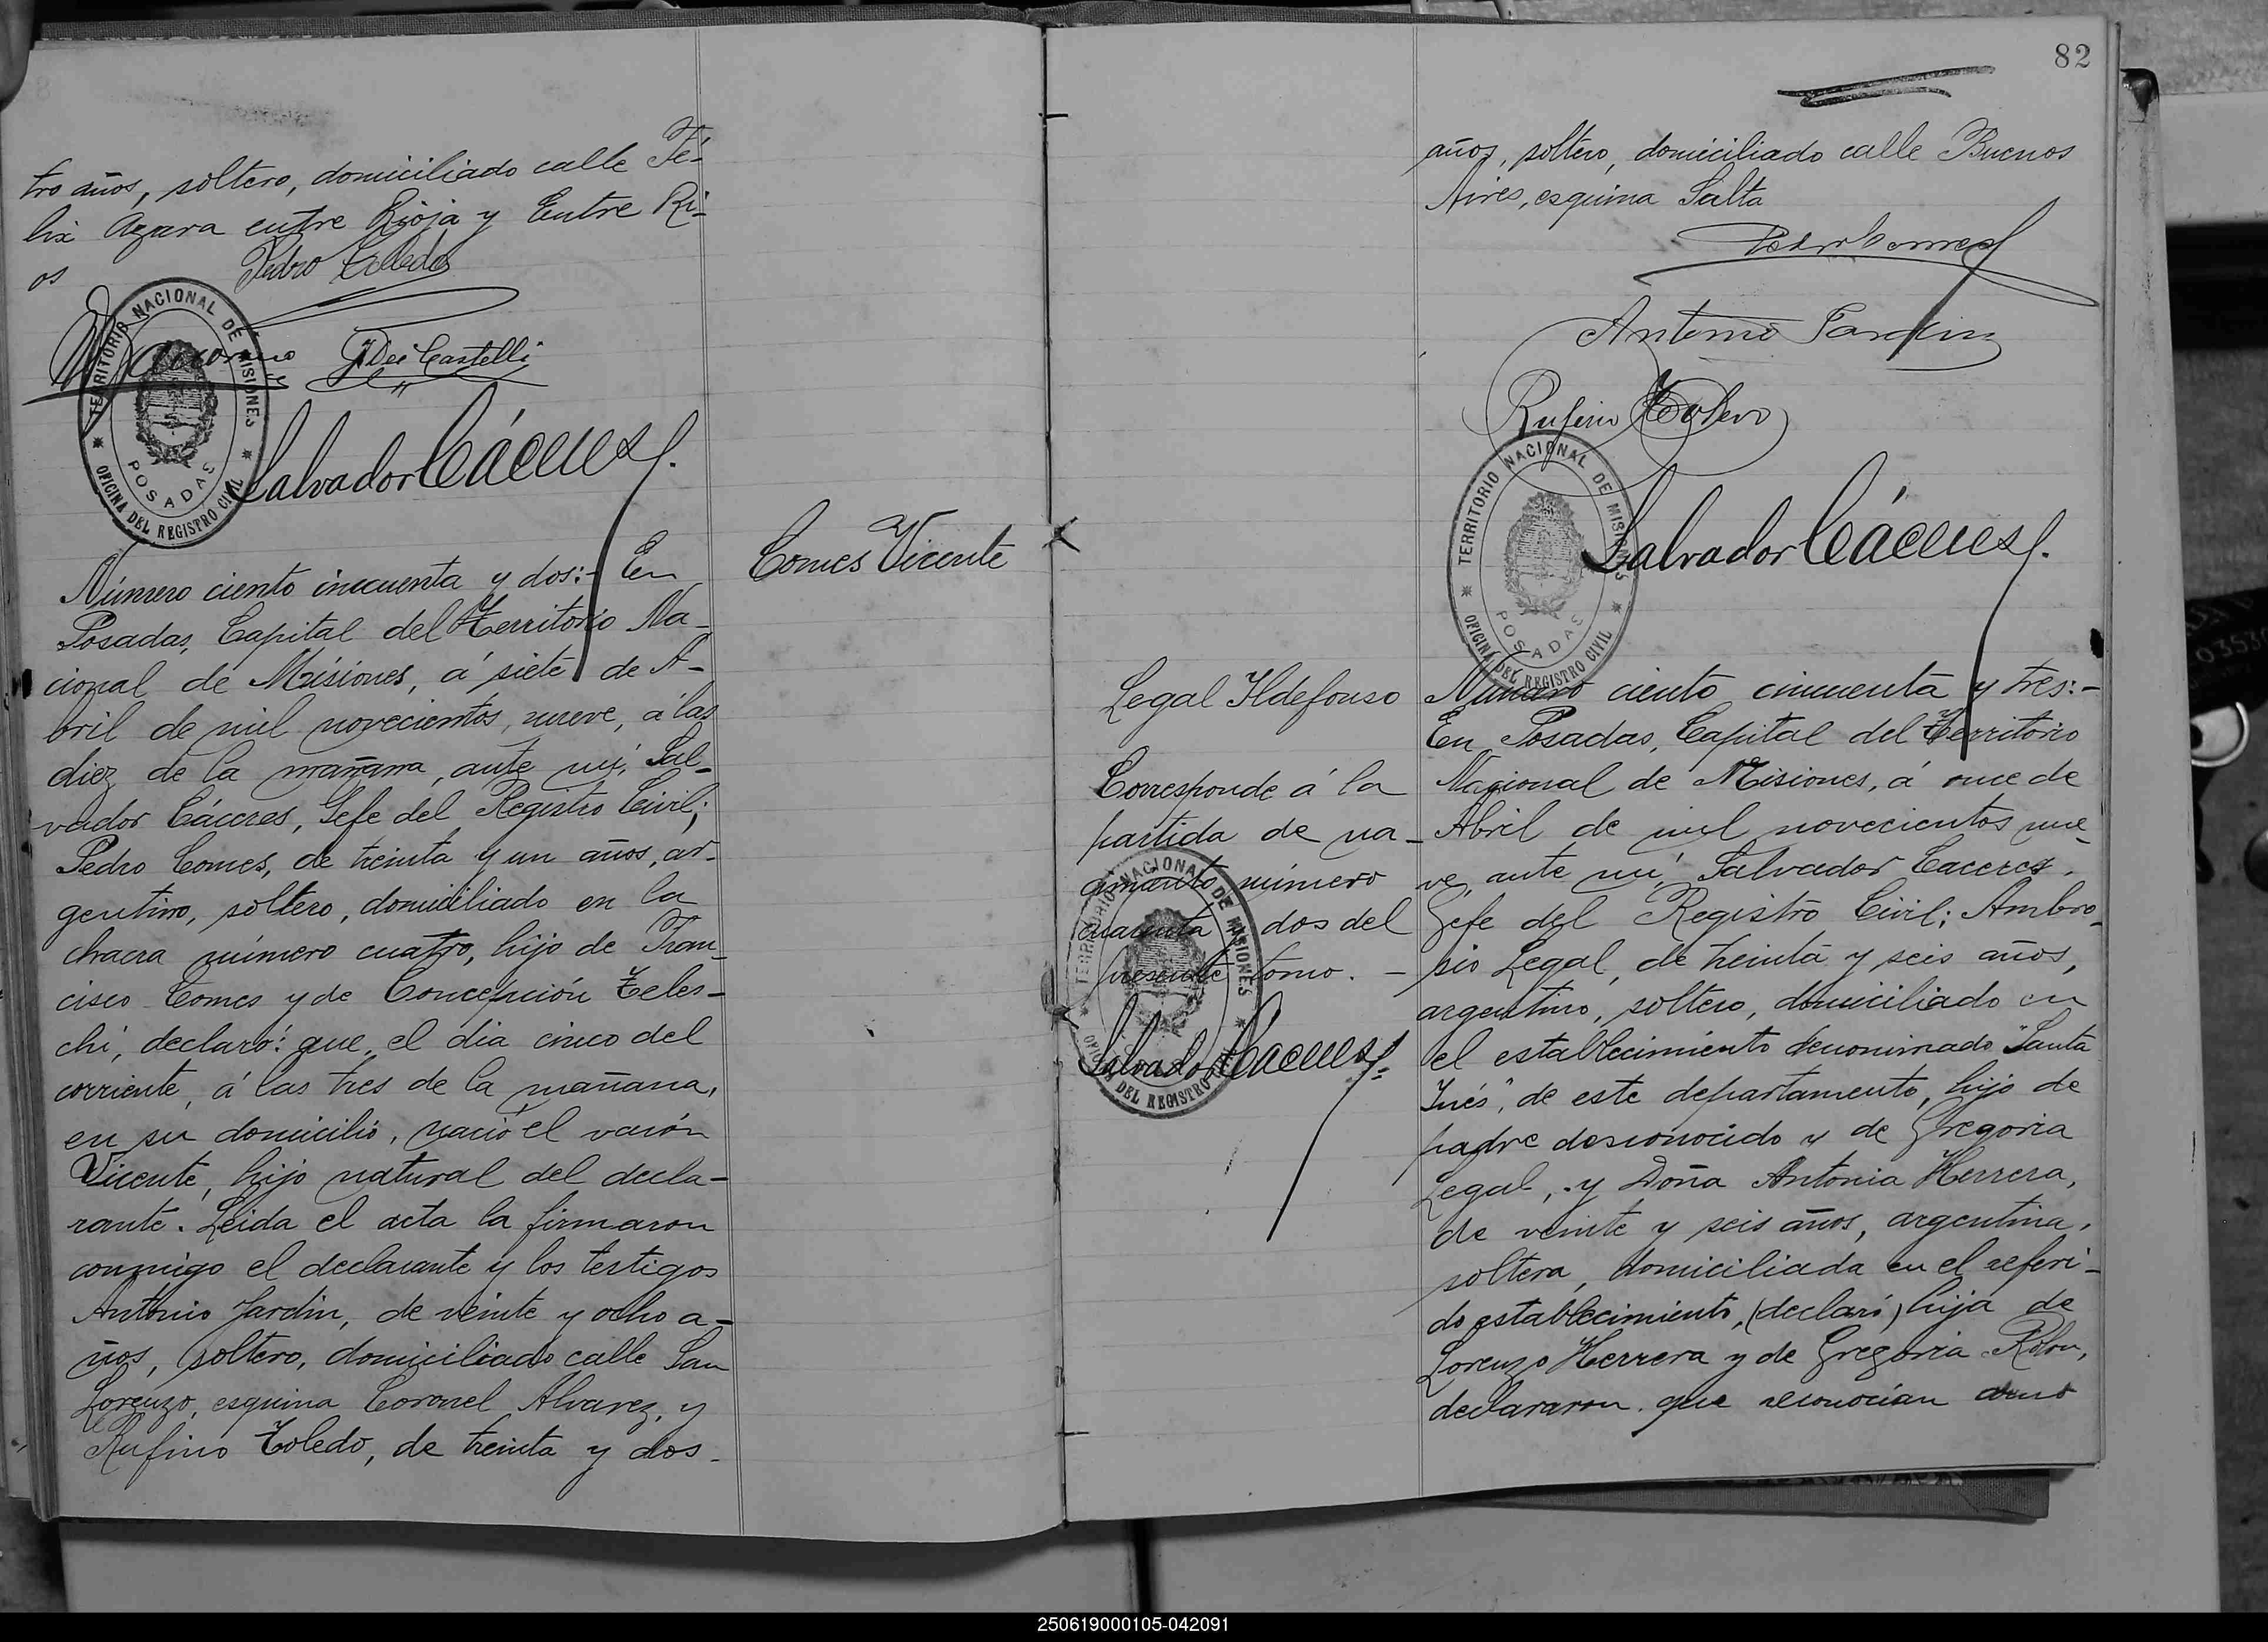 tro años, soltero, domiciliado calle Fé-
lix Azara entre Rioja y Entre Ri-
os
Pedro Toledo
J Dei Castelli
TERRITORIO NACIONAL DE MISIONES
POSADAS
OFICINA DEL REGISTRO CIVIL
Salvador Cáceres
Número ciento cincuenta y dos:- En
Posadas, Capital del Territorio Na-
cional de Misiones, á siete de A-
bril de mil novecientos, nueve, á las
diez de la mañana, ante mí, Sal-
vador Cáceres, Gefe del Registro Civil;
Pedro Comes, de treinta y un años, ar-
gentino, soltero, domiciliado en la
chacra número cuatro, hijo de Fran-
cisco Comes y de Concepción Teles-
chi, declaró: que, el dia cinco del
corriente, á las tres de la mañana,
en su domicilio, nació el varón
Vicente, hijo natural del decla-
rante. Leida el acta la firmaron
conmigo el declarante y los testigos
Antonio Jardin, de veinte y ocho a-
ños, soltero, domiciliado calle San
Lorenzo, esquina Coronel Alvarez, y
Rufino Toledo, de treinta y dos
Comes Vicente
82
años, soltero, domiciliado calle Buenos
Aires, esquina Salta
Pedro Comes
Antonio Jardin
Rufino Toledo
TERRITORIO NACIONAL DE MISIONES
POSADAS
OFICINA DEL REGISTRO CIVIL
Salvador Cáceres
Legal Ildefonso
Corresponde á la
partida de na-
cimiento número
cuarenta y dos del
presente tomo. -
TERRITORIO NACIONAL DE MISIONES
OFICINA DEL REGISTRO CIVIL
Salvador Cáceres
Número ciento cincuenta y tres:-
En Posadas, Capital del Territorio
Nacional de Misiones, á once de
Abril de mil novecientos nue-
ve, ante mí, Salvador Caceres,
Gefe del Registro Civil; Ambro-
sio Legal, de treinta y seis años,
argentino, soltero, domiciliado en
el establecimiento denominado "Santa
Inés", de este departamento, hijo de
padre desconocido y de Gregoria
Legal, y Doña Antonia Herrera,
de veinte y seis años, argentina,
soltera, domiciliada en el referi-
do establecimiento, (declaró) hija de
Lorenzo Herrera y de Gregoria Rolon,
declararon que reconocian como
250619000105-042091